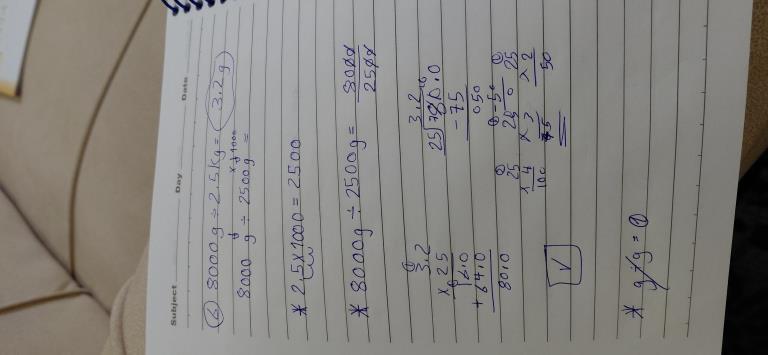 Subject Day Date
6 8000g ÷ 2.5kg = 3.2g
x1000
8000 g ÷ 2500g =
* 2.5 x 1000 = 2500
* 8000g ÷ 2500g = 8000
2500
3.2
x 25
16.0
+ 64.0
80.0
3.2
25 80.0
- 75
050
- 50
0
25
x 4
100
25
x 3
75
25
x 2
50
* g ÷ g =